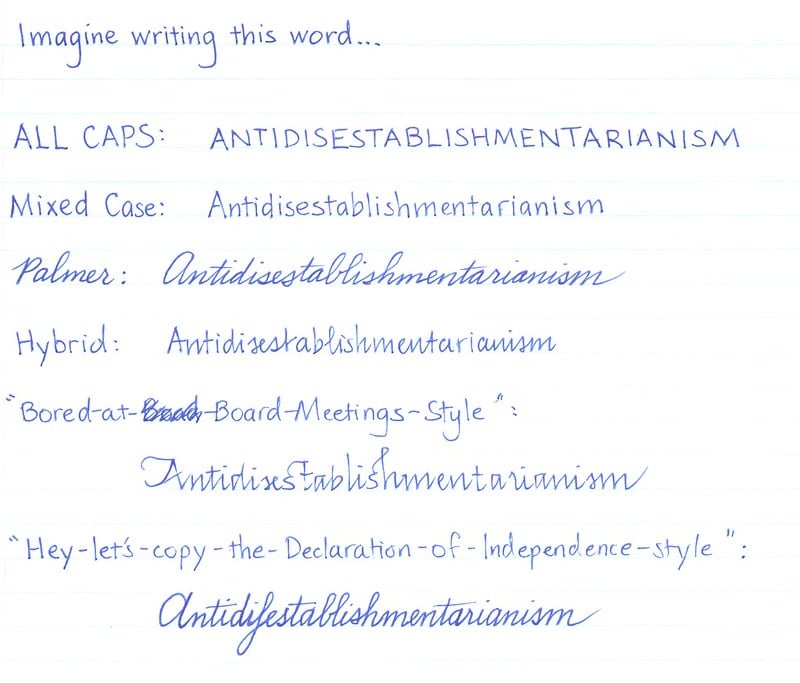 Imagine writing this word...
ALL CAPS: ANTIDISESTABLISHMENTARIANISM
Mixed Case: Antidisestablishmentarianism
Palmer: Antidisestablishmentarianism
Hybrid: Antidisestablishmentarianism
"Bored-at-Board-Meetings-Style":
Antidisestablishmentarianism
"Hey-let's-copy-the-Declaration-of-Independence-style":
Antidiſestablishmentarianism